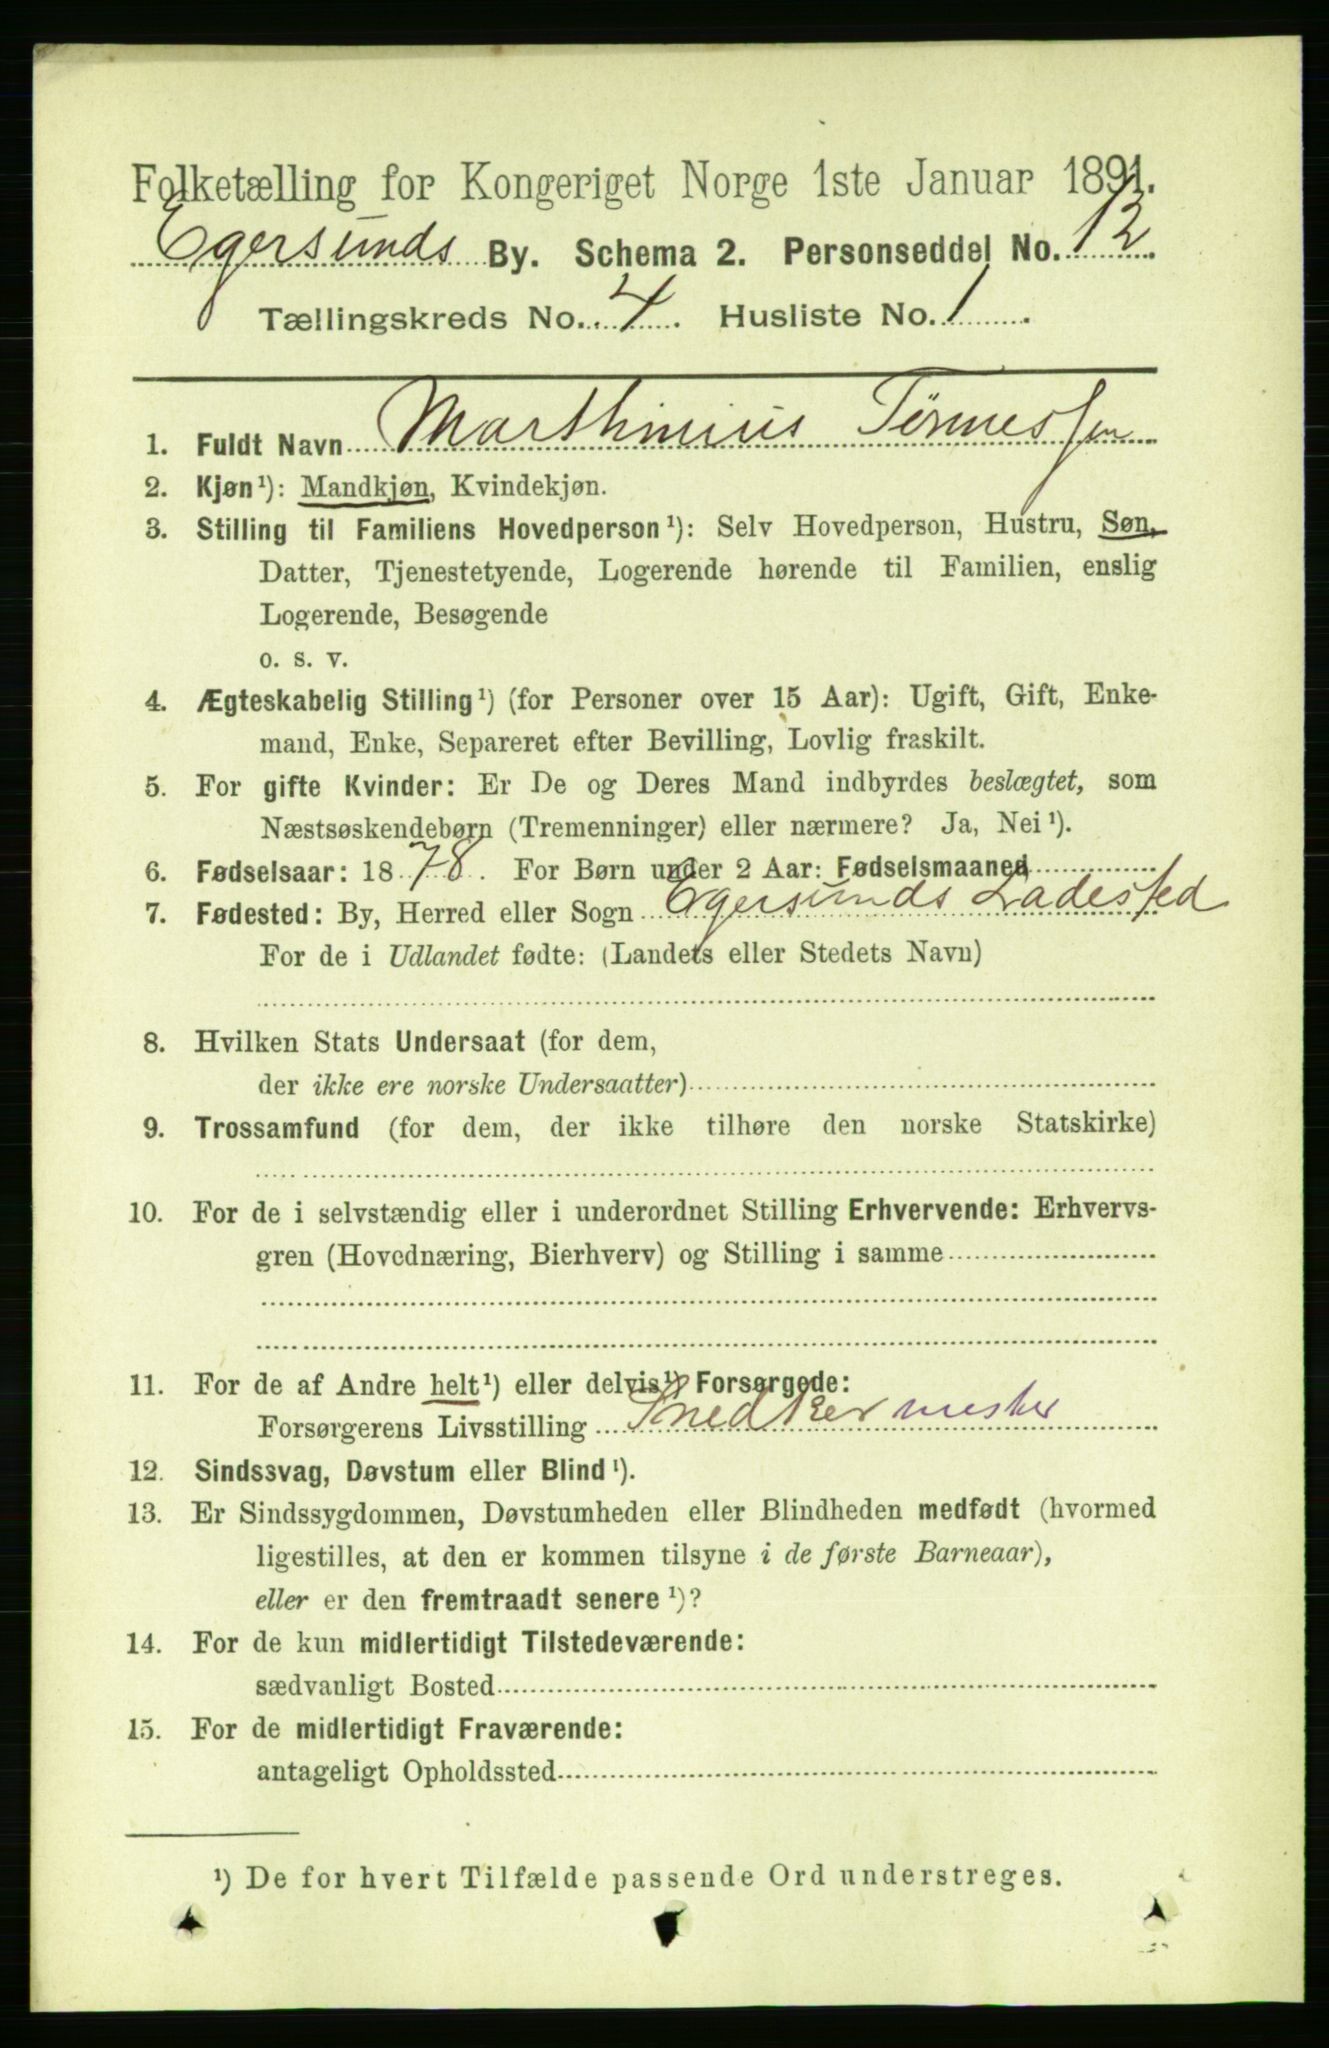 Folketælling for Kongeriget Norge 1ste Januar 1891.
Egersunds By. Schema 2. Personseddel No. 12.
Tællingskreds No. 4. Husliste No. 1.
1. Fuldt Navn Marthinius Tønnessen
2. Kjøn¹): Mandkjøn, Kvindekjøn.
3. Stilling til Familiens Hovedperson¹): Selv Hovedperson, Hustru, Søn,
Datter, Tjenestetyende, Logerende hørende til Familien, enslig
Logerende, Besøgende
o. s. v.
4. Ægteskabelig Stilling¹) (for Personer over 15 Aar): Ugift, Gift, Enke-
mand, Enke, Separeret efter Bevilling, Lovlig fraskilt.
5. For gifte Kvinder: Er De og Deres Mand indbyrdes beslægtet, som
Næstsøskendebørn (Tremenninger) eller nærmere? Ja, Nei¹).
6. Fødselsaar: 1878. For Børn under 2 Aar: Fødselsmaaned
7. Fødested: By, Herred eller Sogn Egersunds Ladested
For de i Udlandet fødte: (Landets eller Stedets Navn)
8. Hvilken Stats Undersaat (for dem,
der ikke ere norske Undersaatter)
9. Trossamfund (for dem, der ikke tilhøre den norske Statskirke)
10. For de i selvstændig eller i underordnet Stilling Erhvervende: Erhvervs-
gren (Hovednæring, Bierhverv) og Stilling i samme
11. For de af Andre helt¹) eller delvis¹) Forsørgede:
Forsørgerens Livsstilling Snedkermester
12. Sindssvag, Døvstum eller Blind¹).
13. Er Sindssygdommen, Døvstumheden eller Blindheden medfødt (hvormed
ligestilles, at den er kommen tilsyne i de første Barneaar),
eller er den fremtraadt senere¹)?
14. For de kun midlertidigt Tilstedeværende:
sædvanligt Bosted
15. For de midlertidigt Fraværende:
antageligt Opholdssted
¹) De for hvert Tilfælde passende Ord understreges.